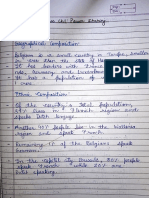 Power Sharing
Geographical Composition
Belgium is a small country in Europe, smaller
in area than the state of
It has borders with France,
Germany and Luxembourg
It has a population of
Ethnic Composition
Of the country's total population,
59% lives in Flemish region and
speaks Dutch language.
Another 40% people live in the Wallonia
region and speak French.
Remaining 1% of the Belgians speak
German.
In the capital city Brussels, 80% people
speak French while 20% are
Dutch speaking.